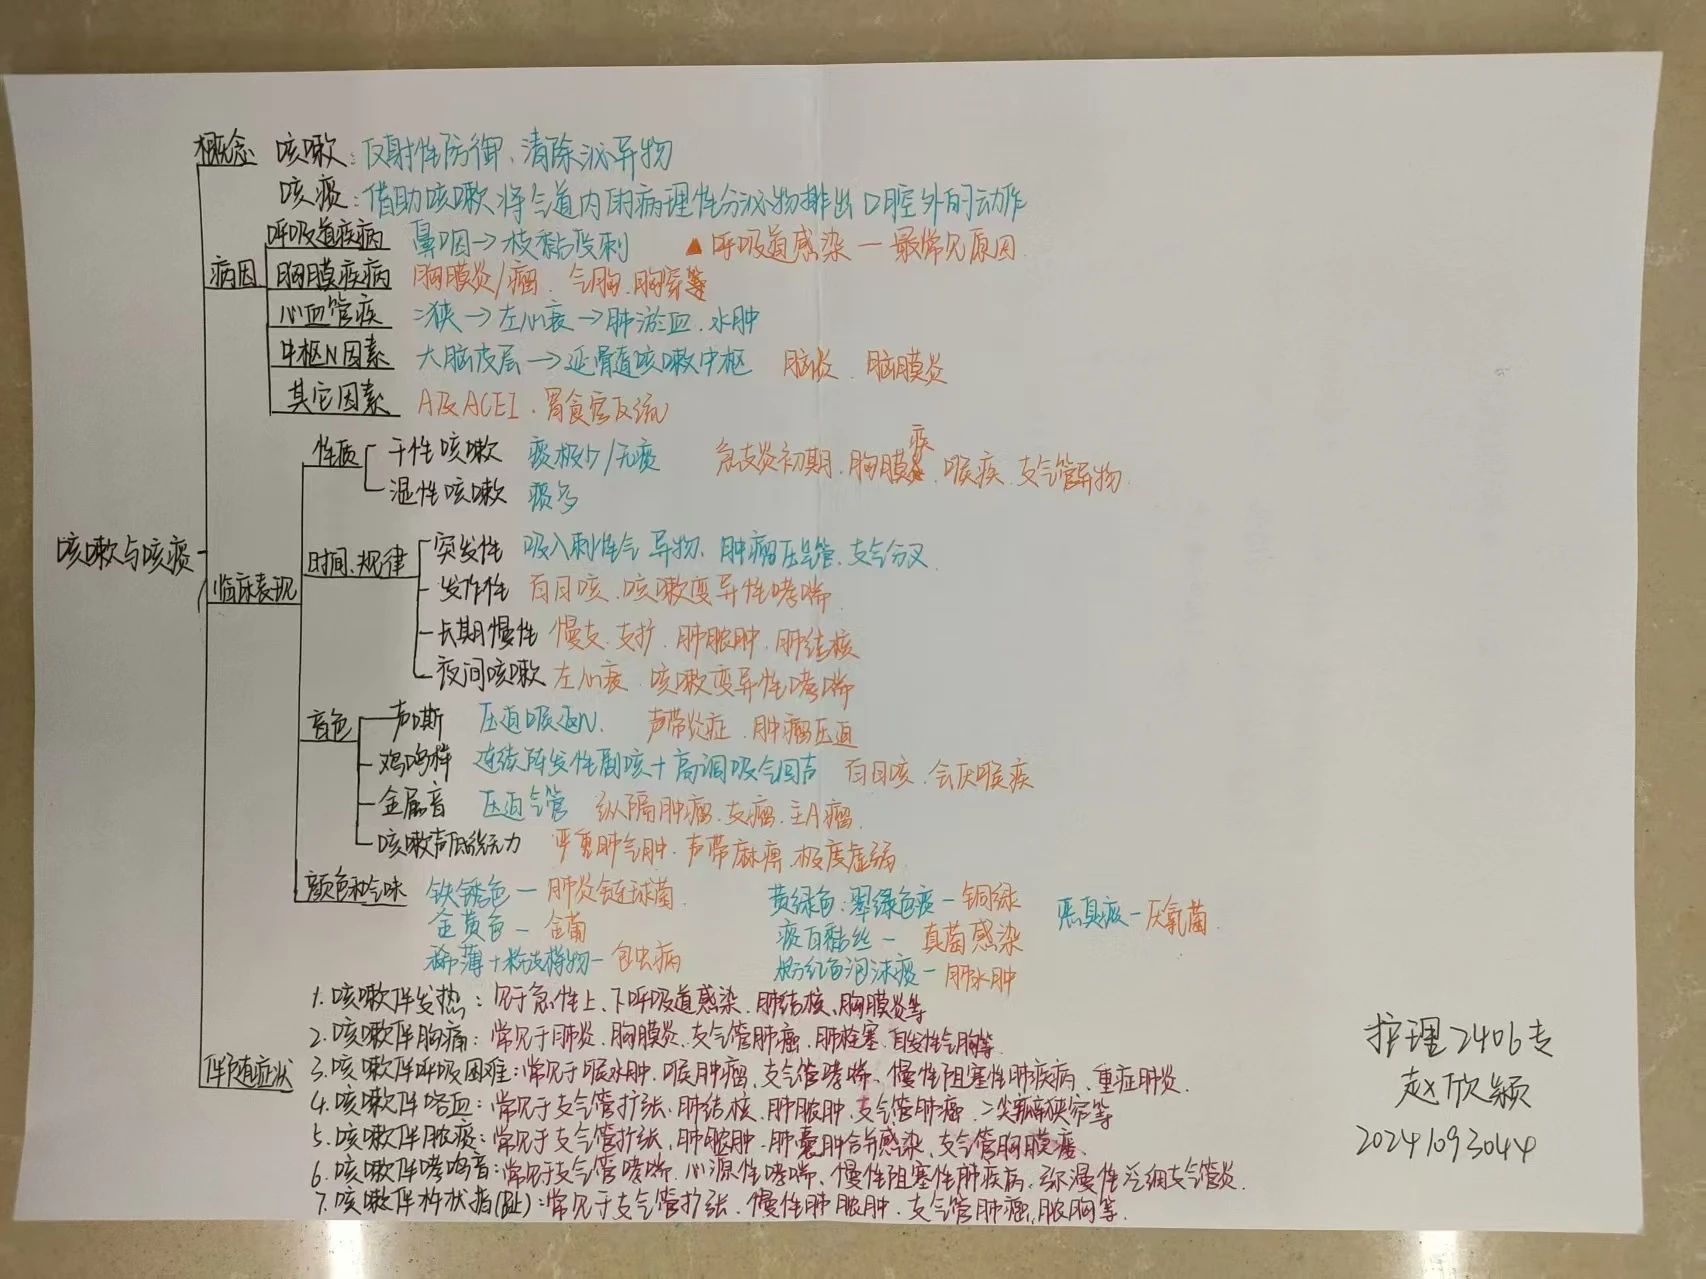 咳嗽与咳痰
概念 咳嗽:反射性防御、清除泌异物
咳痰:借助咳嗽将气道内的病理性分泌物排出口腔外的动作
病因
呼吸道疾病 鼻咽→枝黏段刺 ▲呼吸道感染—最常见原因
胸膜疾病 胸膜炎/瘤、气胸、胸穿等
心血管疾 二狭→左心衰→肺淤血、水肿
中枢N因素 大脑皮层→延髓咳嗽中枢 脑炎、脑膜炎
其它因素 A及ACEI、胃食管反流
临床表现
性质 干性咳嗽 痰极少/无痰 急支炎初期、胸膜疾、喉疾、支气管异物
湿性咳嗽 痰多
时间、规律 突发性 吸入刺性气 异物、肿瘤压气管、支气分叉
发作性 百日咳、咳嗽变异性哮喘
长期慢性 慢支、支扩、肺脓肿、肺结核
夜间咳嗽 左心衰、咳嗽变异性哮喘
音色 声嘶 压迫喉返N、声带炎症、肿瘤压迫
鸡鸣样 连续阵发性剧咳+高调吸气回声 百日咳、会厌喉疾
金属音 压迫气管 纵隔肿瘤、支瘤、主A瘤
咳嗽声低微无力 严重肺气肿、声带麻痹、极度虚弱
颜色和气味 铁锈色—肺炎链球菌 黄绿色、翠绿色痰—铜绿 恶臭痰—厌氧菌
金黄色—金葡 痰白黏丝—真菌感染
稀薄+粉皮样物—包虫病 粉红色泡沫痰—肺水肿
伴随症状
1.咳嗽伴发热:见于急性上、下呼吸道感染、肺结核、胸膜炎等
2.咳嗽伴胸痛:常见于肺炎、胸膜炎、支气管肺癌、肺栓塞、自发性气胸等
3.咳嗽伴呼吸困难:常见于喉水肿、喉肿瘤、支气管哮喘、慢性阻塞性肺疾病、重症肺炎
4.咳嗽伴咯血:常见于支气管扩张、肺结核、肺脓肿、支气管肺癌、二尖瓣狭窄等
5.咳嗽伴脓痰:常见于支气管扩张、肺脓肿、肺囊肿合并感染、支气管胸膜瘘
6.咳嗽伴哮鸣音:常见于支气管哮喘、心源性哮喘、慢性阻塞性肺疾病、弥漫性泛细支气管炎
7.咳嗽伴杵状指(趾):常见于支气管扩张、慢性肺脓肿、支气管肺癌、脓胸等
护理2406专
赵欣颖
20241093044